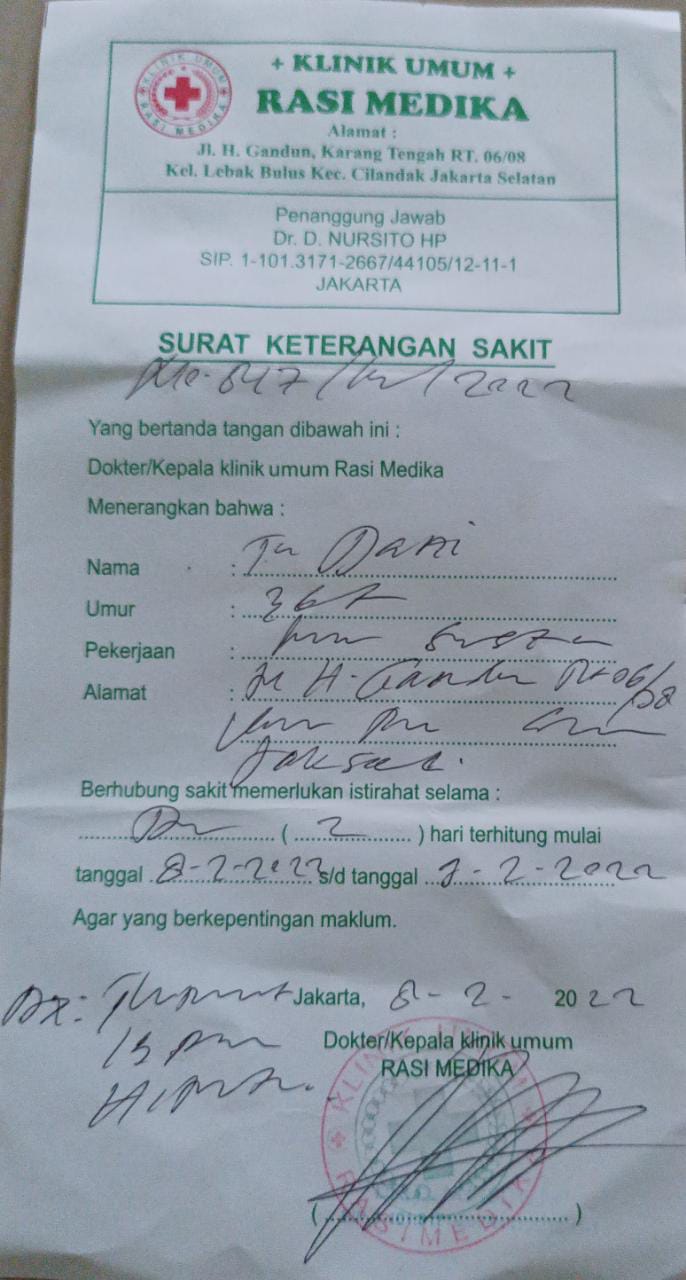 + KLINIK UMUM +
RASI MEDIKA
KLINIK UMUM
RASI MEDIKA
Alamat :
Jl. H. Gandun, Karang Tengah RT. 06/08
Kel. Lebak Bulus Kec. Cilandak Jakarta Selatan
Penanggung Jawab
Dr. D. NURSITO HP
SIP. 1-101.3171-2667/44105/12-11-1
JAKARTA
SURAT KETERANGAN SAKIT
/2022
Yang bertanda tangan dibawah ini :
Dokter/Kepala klinik umum Rasi Medika
Menerangkan bahwa :
Nama : Tn Dani
Umur : 36
Pekerjaan :
Alamat : H. Gandun Rt 06/08
Jaksel.
Berhubung sakit memerlukan istirahat selama :
( 2 ) hari terhitung mulai
tanggal 8-2-2022 s/d tanggal -2-2022
Agar yang berkepentingan maklum.
Dx:
Jakarta, 8-2- 2022
Dokter/Kepala klinik umum
RASI MEDIKA
KLINIK UMUM
RASI MEDIKA
( )